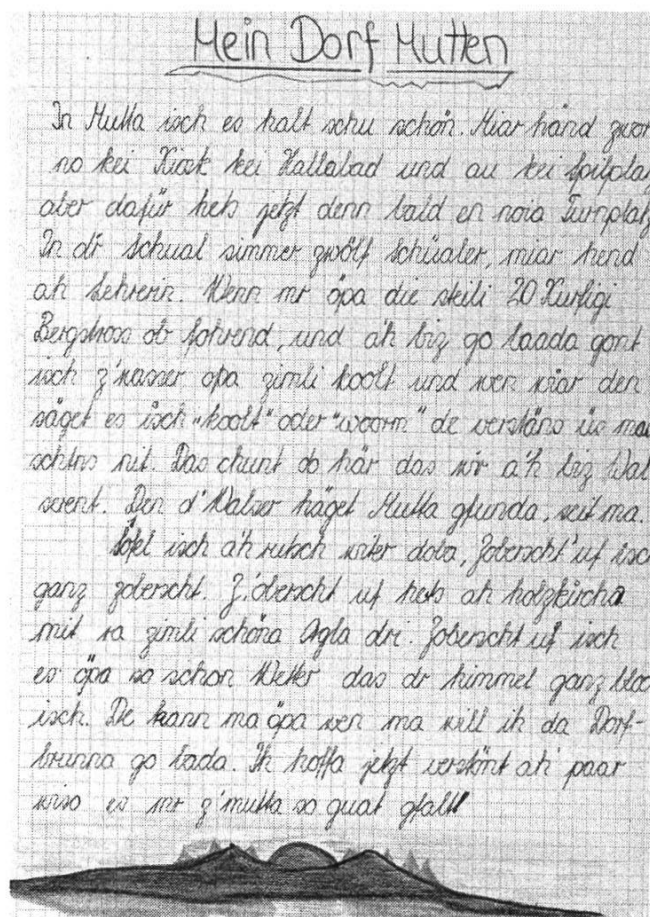 Mein Dorf Mutten
In Mutta isch es halt schu schön. Miar händ zwor
no kei Kiosk kei Hallabad und au kei Spilplatz
aber dafür hets jetzt denn bald en noia Turnplatz
In dr Schual simmer zwölf Schüaler, miar hend
ah Lehrerin. Wenn mr öpa die steili 20 Kurfigi
Bergstross ab fohrend, und äh biz go baada gont
isch z'wasser öpa zimli koolt und wen wiar den
säget es isch "koolt" oder "woorm" de verstäns üs mai
schtns nit. Das chunt do här das wir äh biz Wal
serent. Den d'Walser häget Mutta gfunda, seit ma.
Stofel isch äh rutsch witer doba, Zoberscht'uf isch
ganz zoberscht. Z'oberscht uf hets ah holzkircha
mit ra zimli schöna Ogla dri. Zoberscht uf isch
es öpa so schon Wetter das dr himmel ganz bloo
isch. De kann ma öpa wen ma will ih da Dorf-
brunna go bada. Ih hoffa jetzt verstönt ah paar
wiso es mr z'mutta so guat gfallt